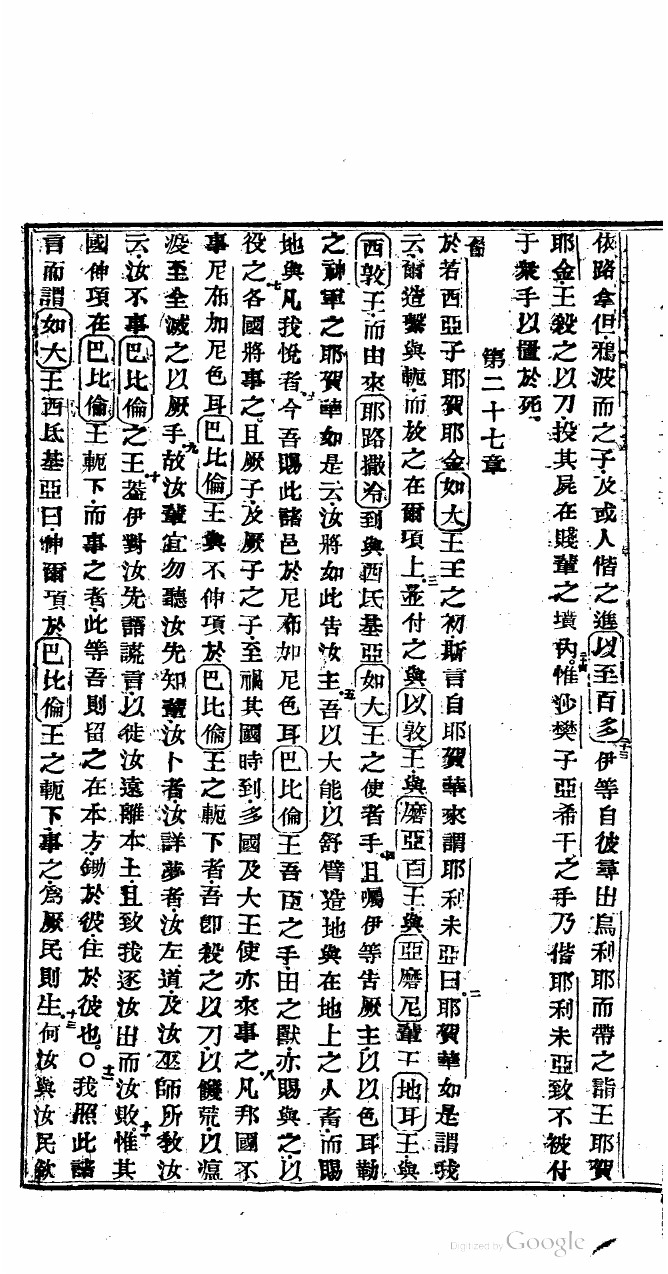 依路拿但鴉波而之子及或人偕之進以至百多伊等自彼尋出烏利耶而帶之詣王耶賀
耶金王殺之以刀投其屍在賤輩之墳內惟沙樊子亞希干之手乃偕耶利未亞致不被付
于衆手以置於死
第二十七章
於若西亞子耶賀耶金如大王王之初斯言自耶賀華來謂耶利未亞曰耶賀華如是謂我
云爾造繫與軛而放之在爾項上並付之與以敦王與磨亞百王與亞磨尼輩王地耳王與
西敦王而由來耶路撒冷到與西氐基亞如大王之使者手且囑伊等告厥主以以色耳勒
之神軍之耶賀華如是云汝將如此告汝主吾以大能以舒臂造地與在地上之人畜而賜
地與凡我悅者今吾賜此諸邑於尼布加尼色耳巴比倫王吾臣之手田之獸亦賜與之以
役之各國將事之且厥子及厥子之子至禍其國時到多國及大王使亦來事之凡邦國不
事尼布加尼色耳巴比倫王與不伸項於巴比倫王之軛下者吾卽殺之以刀以饑荒以瘟
疫至全滅之以厥手故汝輩宜勿聽汝先知輩汝卜者汝詳夢者汝左道及汝巫師所敎汝
云汝不事巴比倫之王蓋伊對汝先語謊言以徙汝遠離本土且致我逐汝出而汝敗惟其
國伸項在巴比倫王軛下而事之者此等吾則留之在本方鋤於彼住於彼也○我照此諸
言而謂如大王西氐基亞曰伸爾項於巴比倫王之軛下事之爲厥民則生何汝與汝民欽
Digitized by Google